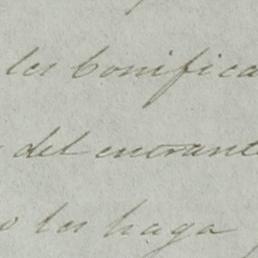 les bonifica
del entrante
o les haga